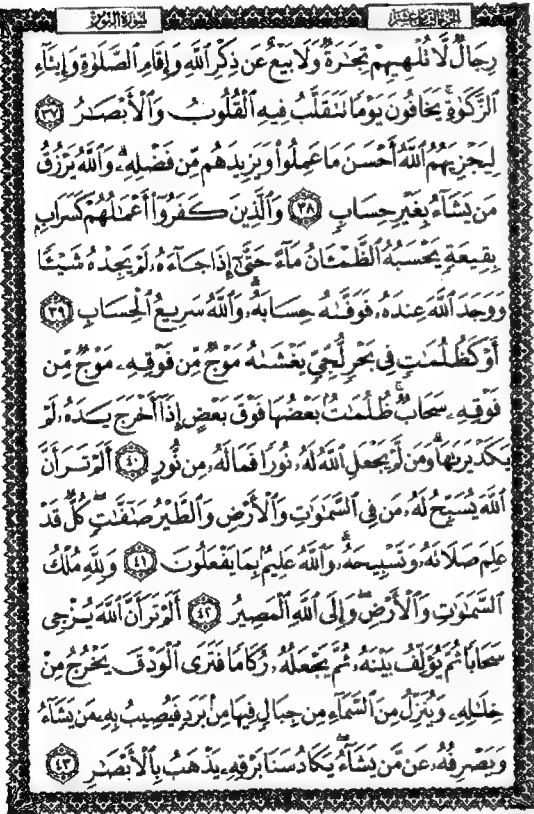 الجزء الثامن عشر
سورة النور
رِجَالٌ لَّا تُلْهِيهِمْ تِجَٰرَةٌ وَلَا بَيْعٌ عَن ذِكْرِ ٱللَّهِ وَإِقَامِ ٱلصَّلَوٰةِ وَإِيتَآءِ
ٱلزَّكَوٰةِ ۙ يَخَافُونَ يَوْمًا تَتَقَلَّبُ فِيهِ ٱلْقُلُوبُ وَٱلْأَبْصَٰرُ ﴿٣٧﴾
لِيَجْزِيَهُمُ ٱللَّهُ أَحْسَنَ مَا عَمِلُوا۟ وَيَزِيدَهُم مِّن فَضْلِهِۦ ۗ وَٱللَّهُ يَرْزُقُ
مَن يَشَآءُ بِغَيْرِ حِسَابٍ ﴿٣٨﴾ وَٱلَّذِينَ كَفَرُوٓا۟ أَعْمَٰلُهُمْ كَسَرَابٍۭ
بِقِيعَةٍ يَحْسَبُهُ ٱلظَّمْـَٔانُ مَآءً حَتَّىٰٓ إِذَا جَآءَهُۥ لَمْ يَجِدْهُ شَيْـًٔا
وَوَجَدَ ٱللَّهَ عِندَهُۥ فَوَفَّىٰهُ حِسَابَهُۥ ۗ وَٱللَّهُ سَرِيعُ ٱلْحِسَابِ ﴿٣٩﴾
أَوْ كَظُلُمَٰتٍ فِى بَحْرٍ لُّجِّىٍّ يَغْشَىٰهُ مَوْجٌ مِّن فَوْقِهِۦ مَوْجٌ مِّن
فَوْقِهِۦ سَحَابٌ ۚ ظُلُمَٰتٌۢ بَعْضُهَا فَوْقَ بَعْضٍ إِذَآ أَخْرَجَ يَدَهُۥ لَمْ
يَكَدْ يَرَىٰهَا ۗ وَمَن لَّمْ يَجْعَلِ ٱللَّهُ لَهُۥ نُورًا فَمَا لَهُۥ مِن نُّورٍ ﴿٤٠﴾ أَلَمْ تَرَ أَنَّ
ٱللَّهَ يُسَبِّحُ لَهُۥ مَن فِى ٱلسَّمَٰوَٰتِ وَٱلْأَرْضِ وَٱلطَّيْرُ صَٰٓفَّٰتٍ ۖ كُلٌّ قَدْ
عَلِمَ صَلَاتَهُۥ وَتَسْبِيحَهُۥ ۗ وَٱللَّهُ عَلِيمٌۢ بِمَا يَفْعَلُونَ ﴿٤١﴾ وَلِلَّهِ مُلْكُ
ٱلسَّمَٰوَٰتِ وَٱلْأَرْضِ ۖ وَإِلَى ٱللَّهِ ٱلْمَصِيرُ ﴿٤٢﴾ أَلَمْ تَرَ أَنَّ ٱللَّهَ يُزْجِى
سَحَابًا ثُمَّ يُؤَلِّفُ بَيْنَهُۥ ثُمَّ يَجْعَلُهُۥ رُكَامًا فَتَرَى ٱلْوَدْقَ يَخْرُجُ مِنْ
خِلَٰلِهِۦ وَيُنَزِّلُ مِنَ ٱلسَّمَآءِ مِن جِبَالٍ فِيهَا مِنۢ بَرَدٍ فَيُصِيبُ بِهِۦ مَن يَشَآءُ
وَيَصْرِفُهُۥ عَن مَّن يَشَآءُ ۖ يَكَادُ سَنَا بَرْقِهِۦ يَذْهَبُ بِٱلْأَبْصَٰرِ ﴿٤٣﴾